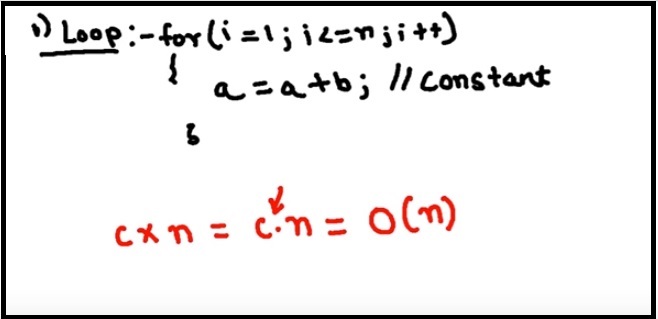 1) Loop:- for(i=1; i<=n; i++)
{
a=a+b; // constant
}
c x n = c.n = O(n)